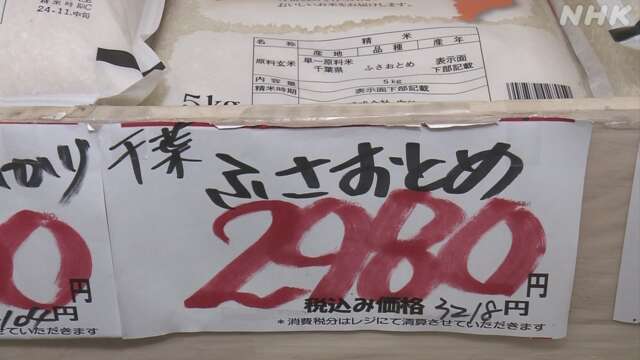 NHK
おいしいお米をお届けします。
24.11.中旬
名称 精米
産地 品種 産年
原料玄米 単一原料米
千葉県 ふさおとめ 表示面下部記載
内容量 5kg
精米時期 表示面下部記載
5kg
千葉 ふさおとめ
2980円
税込み価格 3218円
*消費税分はレジにて清算させていただきます
かり
0円
104円
せていただきます